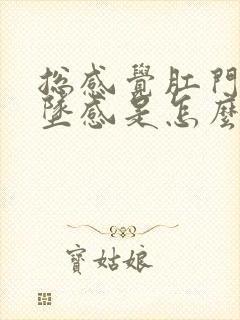 總感覺肛門
墜感是怎麼
寶姑娘